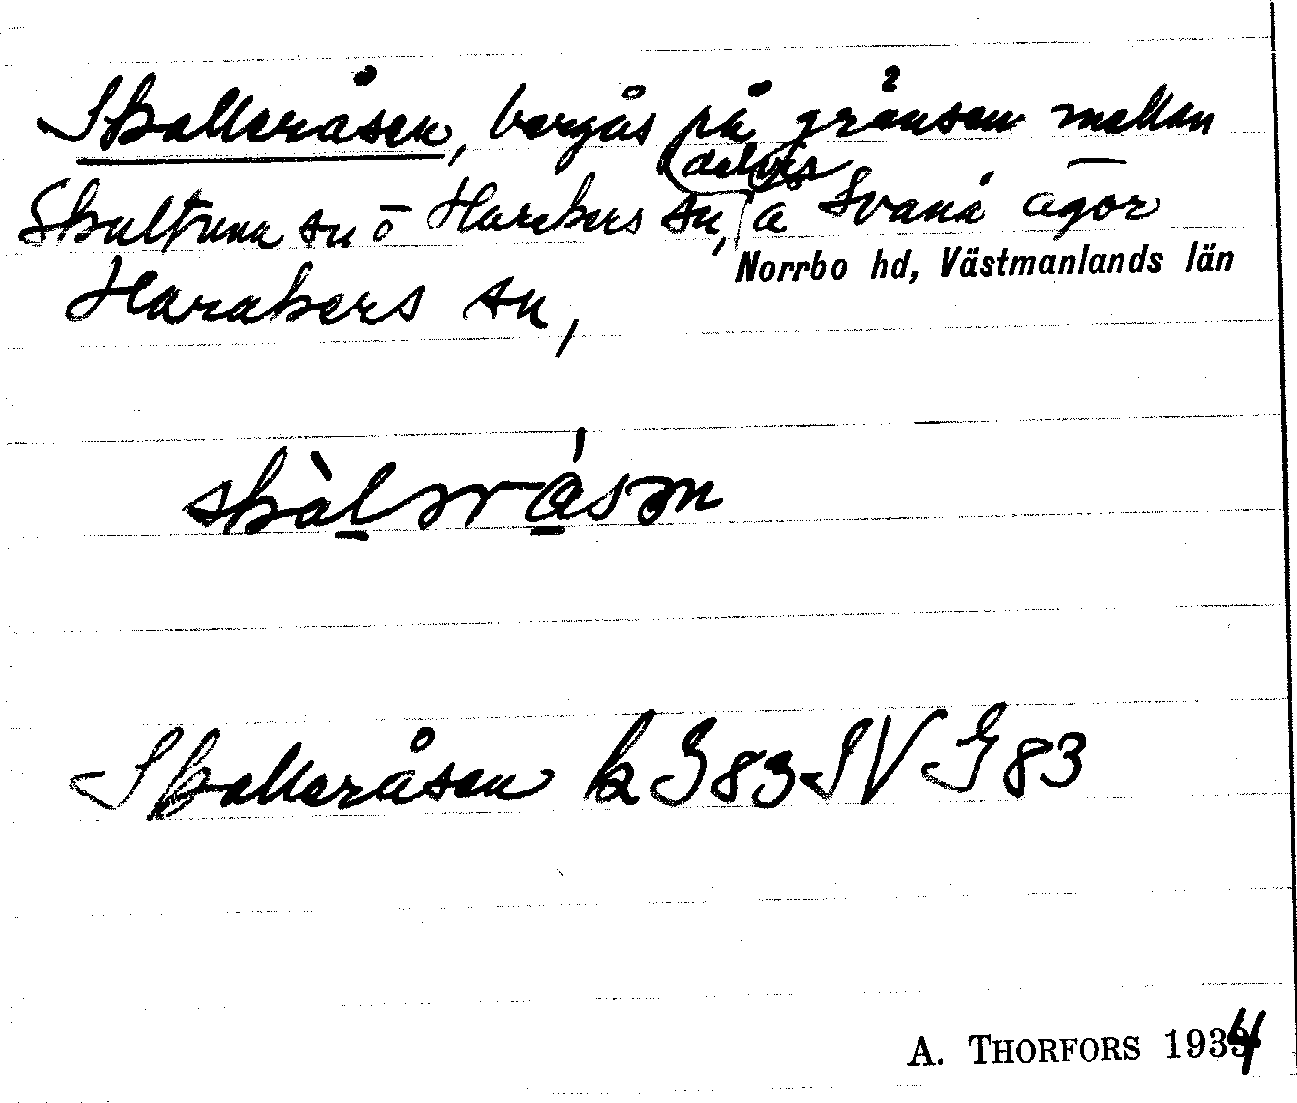 Skalleråsen, bergås på gränsen mellan
Skultuna sn o Harakers sn, (delvis) å Svanå ägor
Norrbo hd, Västmanlands län
Harakers sn,
skàlǝråsǝn
Skalleråsen k G 83 SV G 83
A. THORFORS 1934